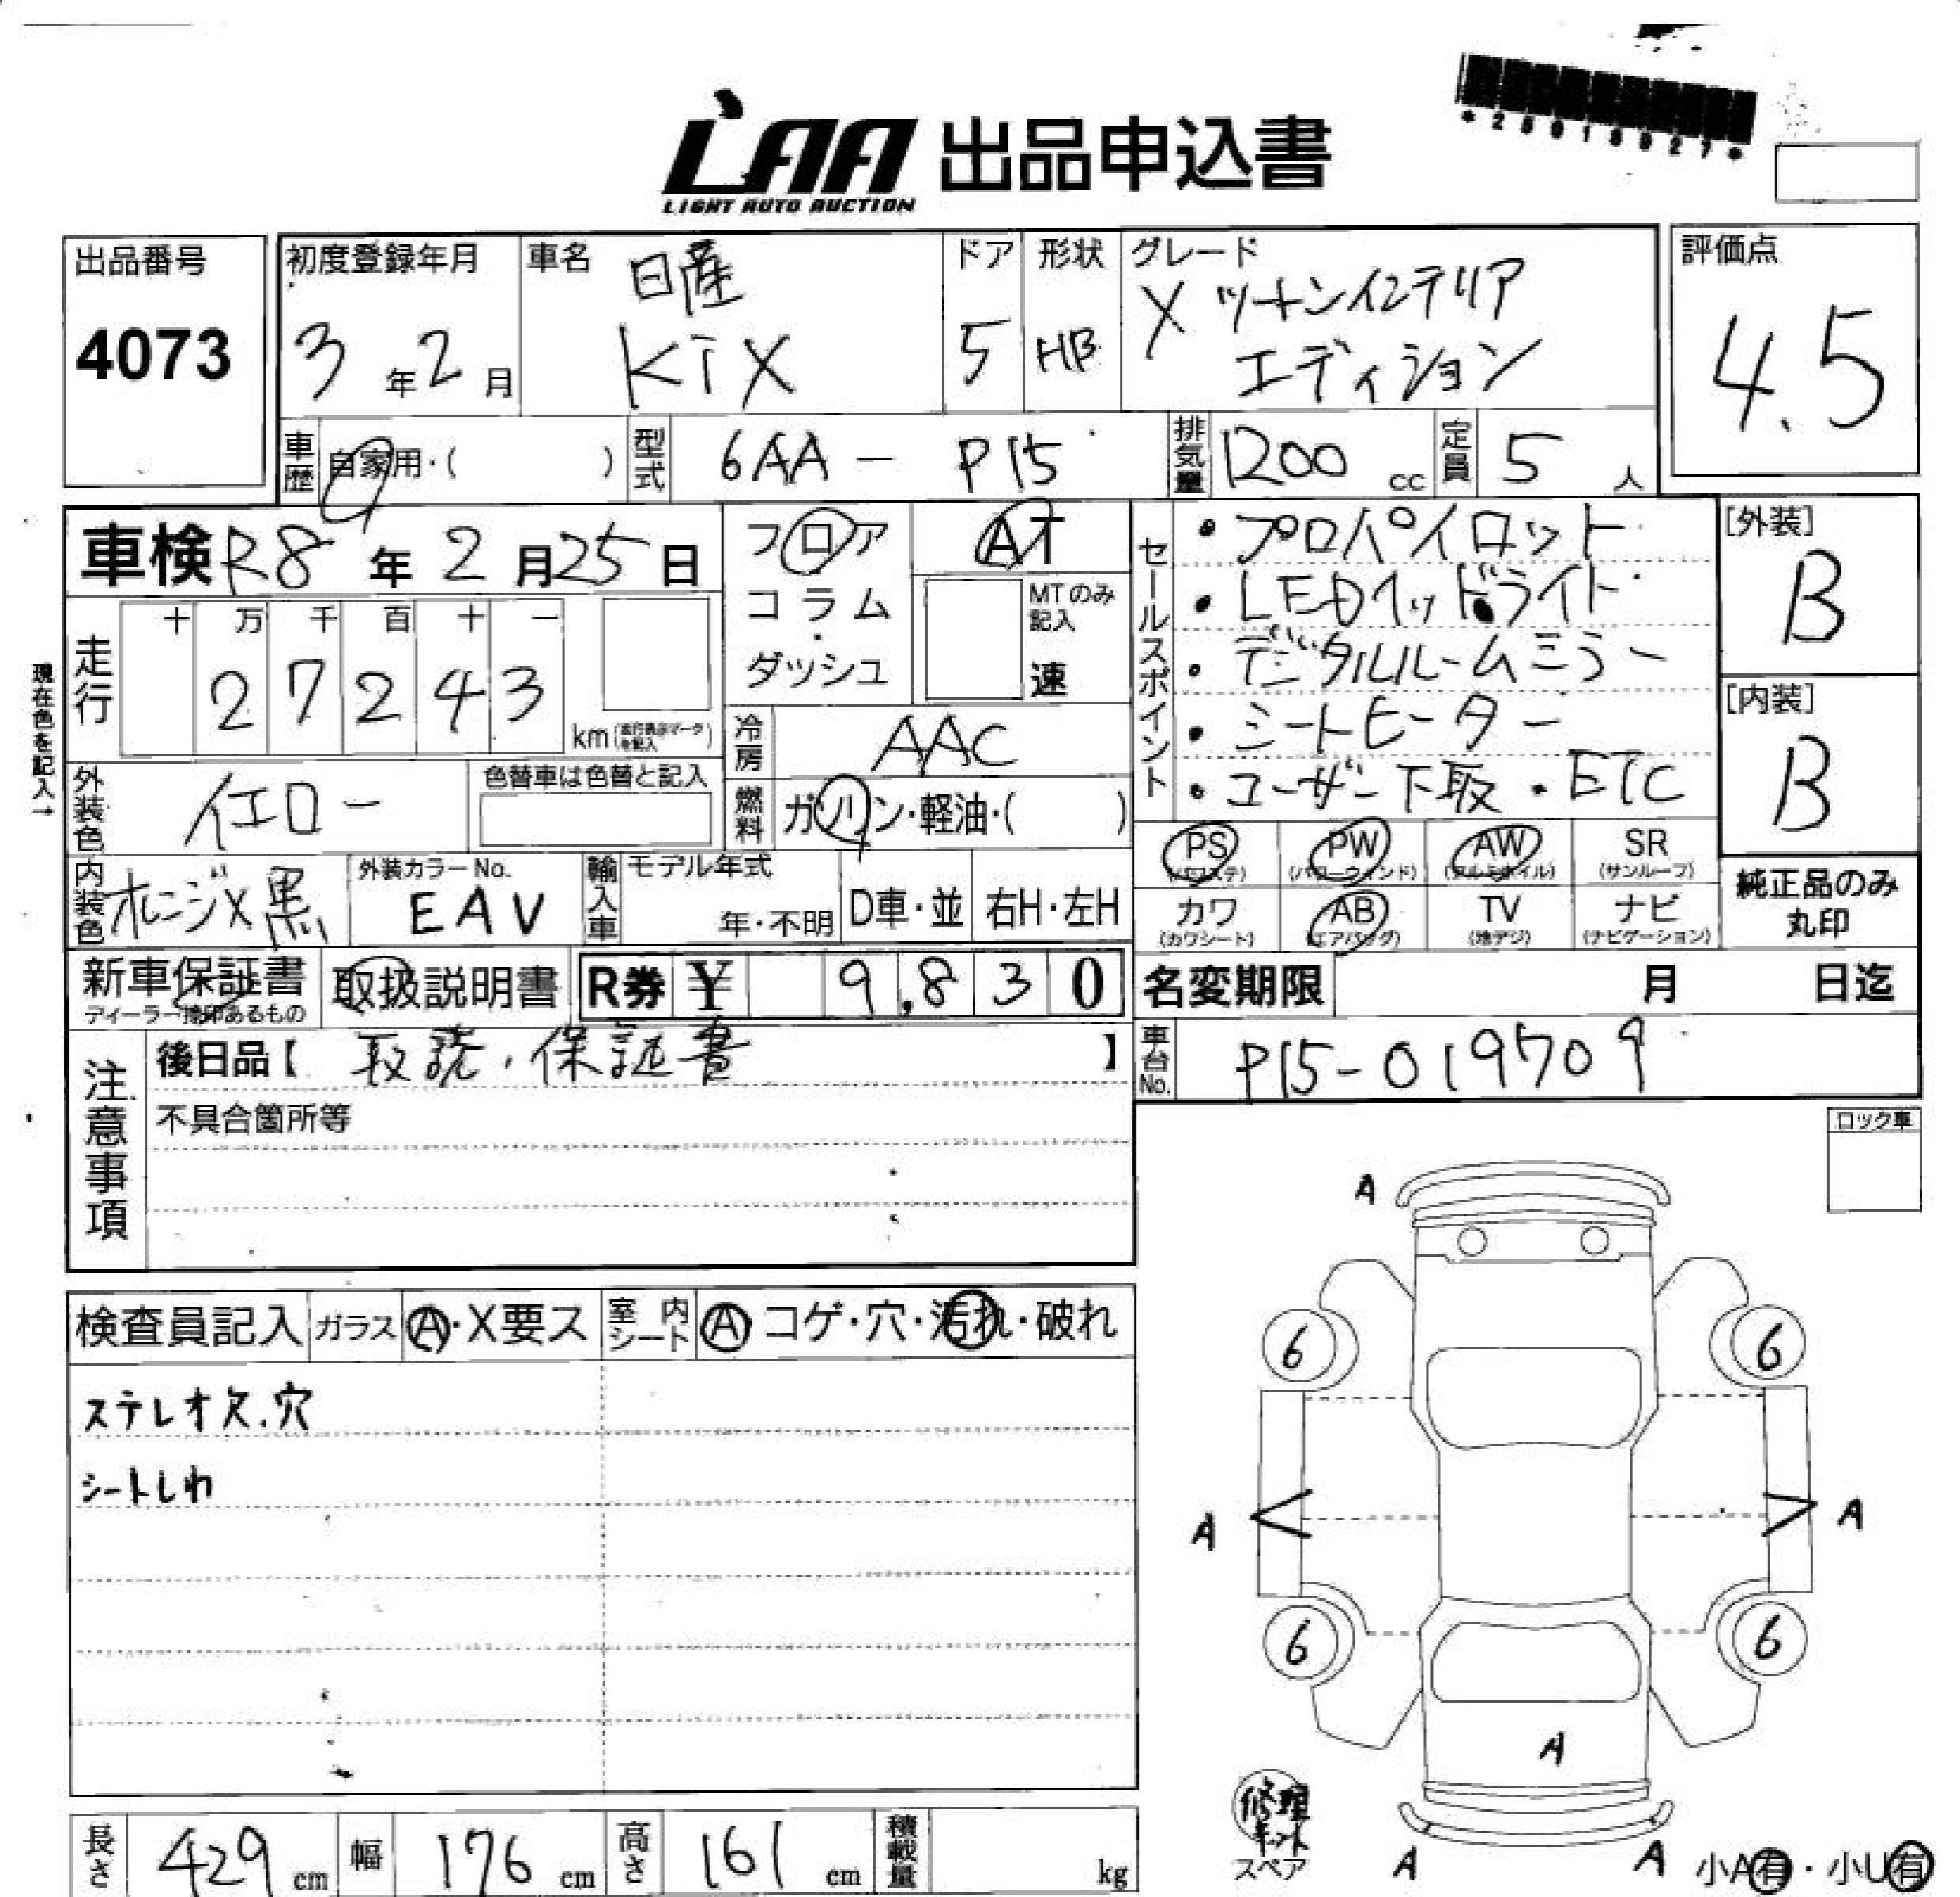 L'AA 出品申込書
LIGHT AUTO AUCTION
*25018927*
出品番号
4073
初度登録年月
3年2月
車名
日産
KiX
ドア
5
形状
HB
グレード
X ツートンインテリア
エディション
評価点
4.5
車歴 自家用・( )
型式 6AA - P15
排気量 1200 cc
定員 5 人
車検 R8年2月25日
フロア
コラム
・
ダッシュ
AT
MTのみ
記入
速
セールスポイント
・プロパイロット
・LEDヘッドライト
・デジタルルームミラー
・シートヒーター
・ユーザー下取・ETC
[外装]
B
[内装]
B
走行
十 万 千 百 十 一
2 7 2 4 3
km(走行表示マークを記入)
現在色を記入→
冷房 AAC
外装色 イエロー
色替車は色替と記入
燃料 ガソリン・軽油・( )
内装色 オレンジX黒
外装カラーNo.
EAV
輸入車
モデル年式
年・不明
D車・並
右H・左H
PS
(パワステ)
PW
(パワーウィンド)
AW
(アルミホイル)
SR
(サンルーフ)
カワ
(カワシート)
AB
(エアバッグ)
TV
(地デジ)
ナビ
(ナビゲーション)
純正品のみ
丸印
新車保証書
ディーラー捺印あるもの
取扱説明書
R券 ¥ 9,830
名変期限 月 日迄
注意事項
後日品【 取説・保証書 】
不具合箇所等
車台No. P15-019709
ロック車
検査員記入
ガラス A・X要ス
室内シート A コゲ・穴・汚れ・破れ
ステレオ欠.穴
シートしわ
A
6 6
A A
6 6
A
修理
キット
スペア
A A
小A有・小U有
長さ 429 cm
幅 176 cm
高さ 161 cm
積載量 kg